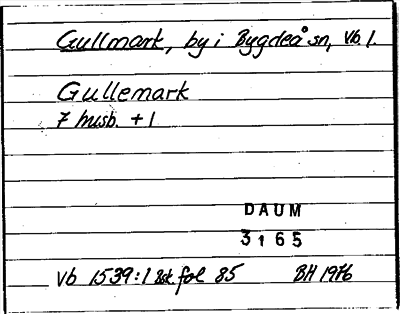 Gullmark, by i Bygdeå sn, Vb. l.
Gullemark
7 husb. + 1
DAUM
3165
Vb 1539:1 fol 85 BH 1976